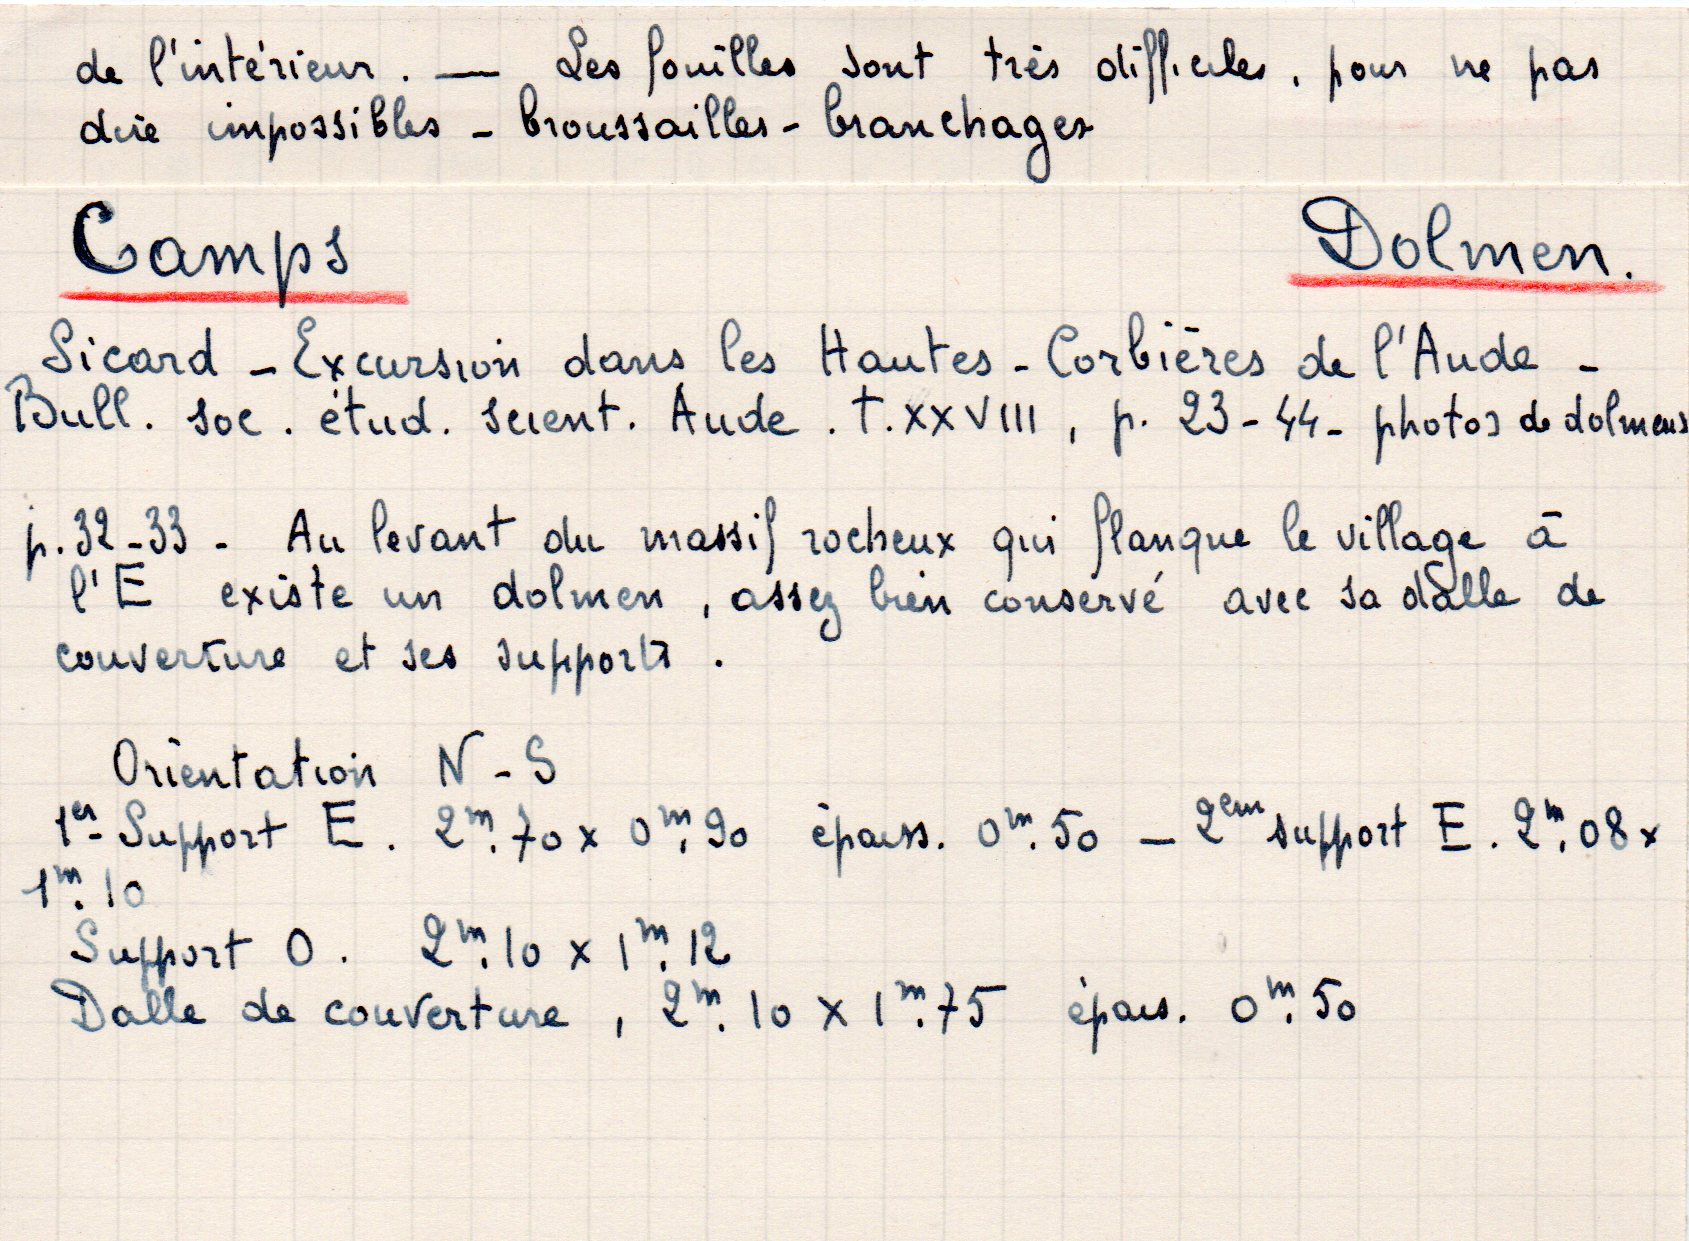 de l'intérieur. — Les fouilles sont très difficiles, pour ne pas
dire impossibles - broussailles - branchages
Camps Dolmen.
Sicard - Excursion dans les Hautes-Corbières de l'Aude -
Bull. soc. étud. scient. Aude. t. XXVIII, p. 23-44 - photos de dolmens
p. 32-33 - Au levant du massif rocheux qui flanque le village à
l'E existe un dolmen, assez bien conservé avec sa dalle de
couverture et ses supports.
Orientation N-S
1er Support E. 2m.70 x 0m.90 épaiss. 0m.50 - 2em support E. 2m.08 x
1m.10
Support O. 2m.10 x 1m.12
Dalle de couverture, 2m.10 x 1m.75 épais. 0m.50